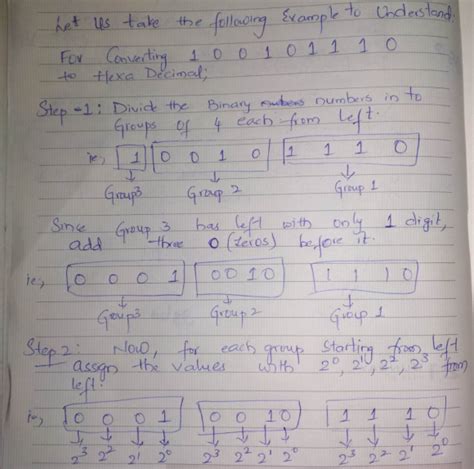 Let us take the following Example to Understand.
For Converting 1 0 0 1 0 1 1 1 0
to Hexa Decimal;
Step-1: Divide the Binary numbers in to
Groups of 4 each from left.
ie, 1 0 0 1 0 1 1 1 0
Group3 Group 2 Group 1
Since Group 3 has left with only 1 digit,
add three 0 (zeros) before it.
ie, 0 0 0 1 0 0 1 0 1 1 1 0
Group3 Group2 Group 1
Step 2: Now, for each group starting from left
assign the values with 2⁰, 2¹, 2², 2³ from
left.
ie, 0 0 0 1 0 0 1 0 1 1 1 0
2³ 2² 2¹ 2⁰ 2³ 2² 2¹ 2⁰ 2³ 2² 2¹ 2⁰